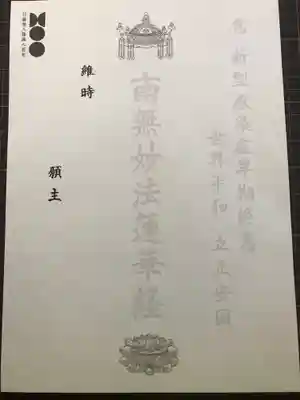 為 新型感染症早期終息
世界平和 立正安国
南無妙法蓮華経
維時
願主
日蓮聖人降誕八百年